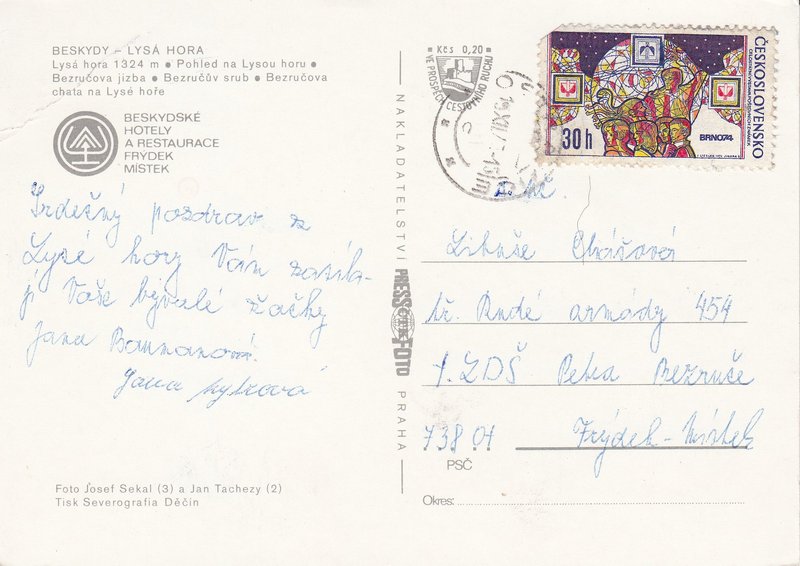 BESKYDY – LYSÁ HORA
Lysá hora 1324 m ● Pohled na Lysou horu ●
Bezručova jizba ● Bezručův srub ● Bezručova
chata na Lysé hoře
BESKYDSKÉ
HOTELY
A RESTAURACE
FRÝDEK
MÍSTEK
Srdečný pozdrav z
Lysé hory Vám zasíla-
jí Vaše bývalé žačky
Jana Baumanová.
Jana
Foto Josef Sekal (3) a Jan Tachezy (2)
Tisk Severografia Děčín
NAKLADATELSTVÍ PRESSFOTO PRAHA
Kčs 0,20
VE PROSPĚCH CESTOVNÍHO RUCHU
ČESKOSLOVENSKO
30 h
BRNO74
Libuše
tř. Rudé armády 454
1. ZDŠ Petra Bezruče
738 01 Frýdek-Místek
PSČ
Okres: